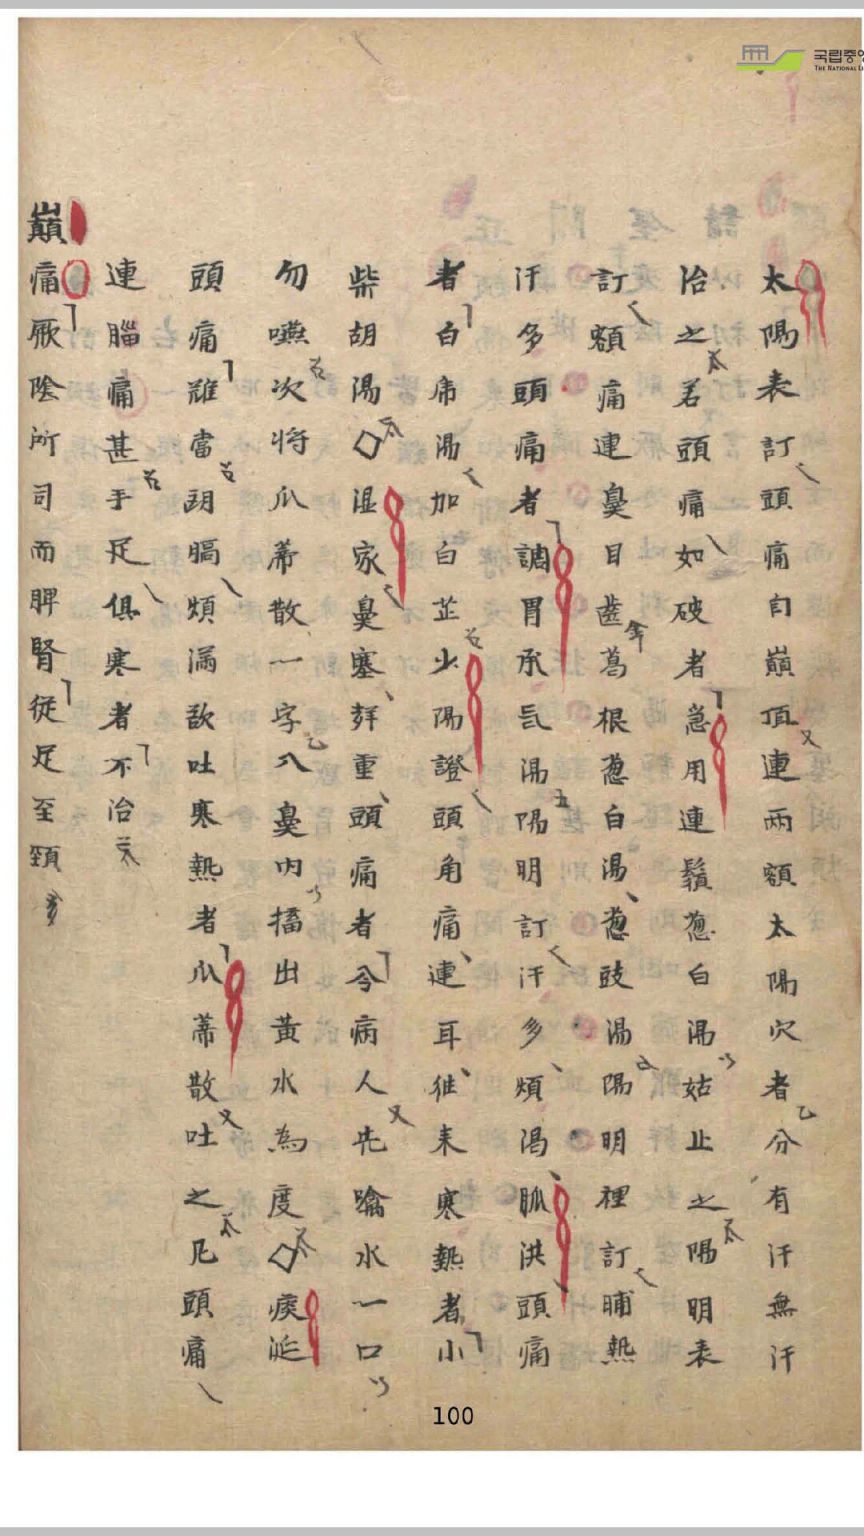 太陽表訂頭痛自巔頂連兩額太陽穴者分有汗無汗
治之若頭痛如破者急用連鬚葱白湯姑止之陽明表
訂額痛連鼻目齒葛根葱白湯葱豉湯陽明裡訂晡熱
汗多頭痛者調胃承氣湯陽明訂汗多煩渴脈洪頭痛
者白虎湯加白芷少陽證頭角痛連耳徃来寒熱者小
柴胡湯◇湿家鼻塞聲重頭痛者令病人先噙水一口
勿嚥次将瓜蒂散一字入鼻内搐出黃水為度◇痰涎
頭痛雖當胷膈煩滿欲吐寒熱者瓜蒂散吐之凡頭痛
連腦痛甚手足俱寒者不治
巔痛厥陰所司而脾腎從足至頸
국립중앙
THE NATIONAL LI
100